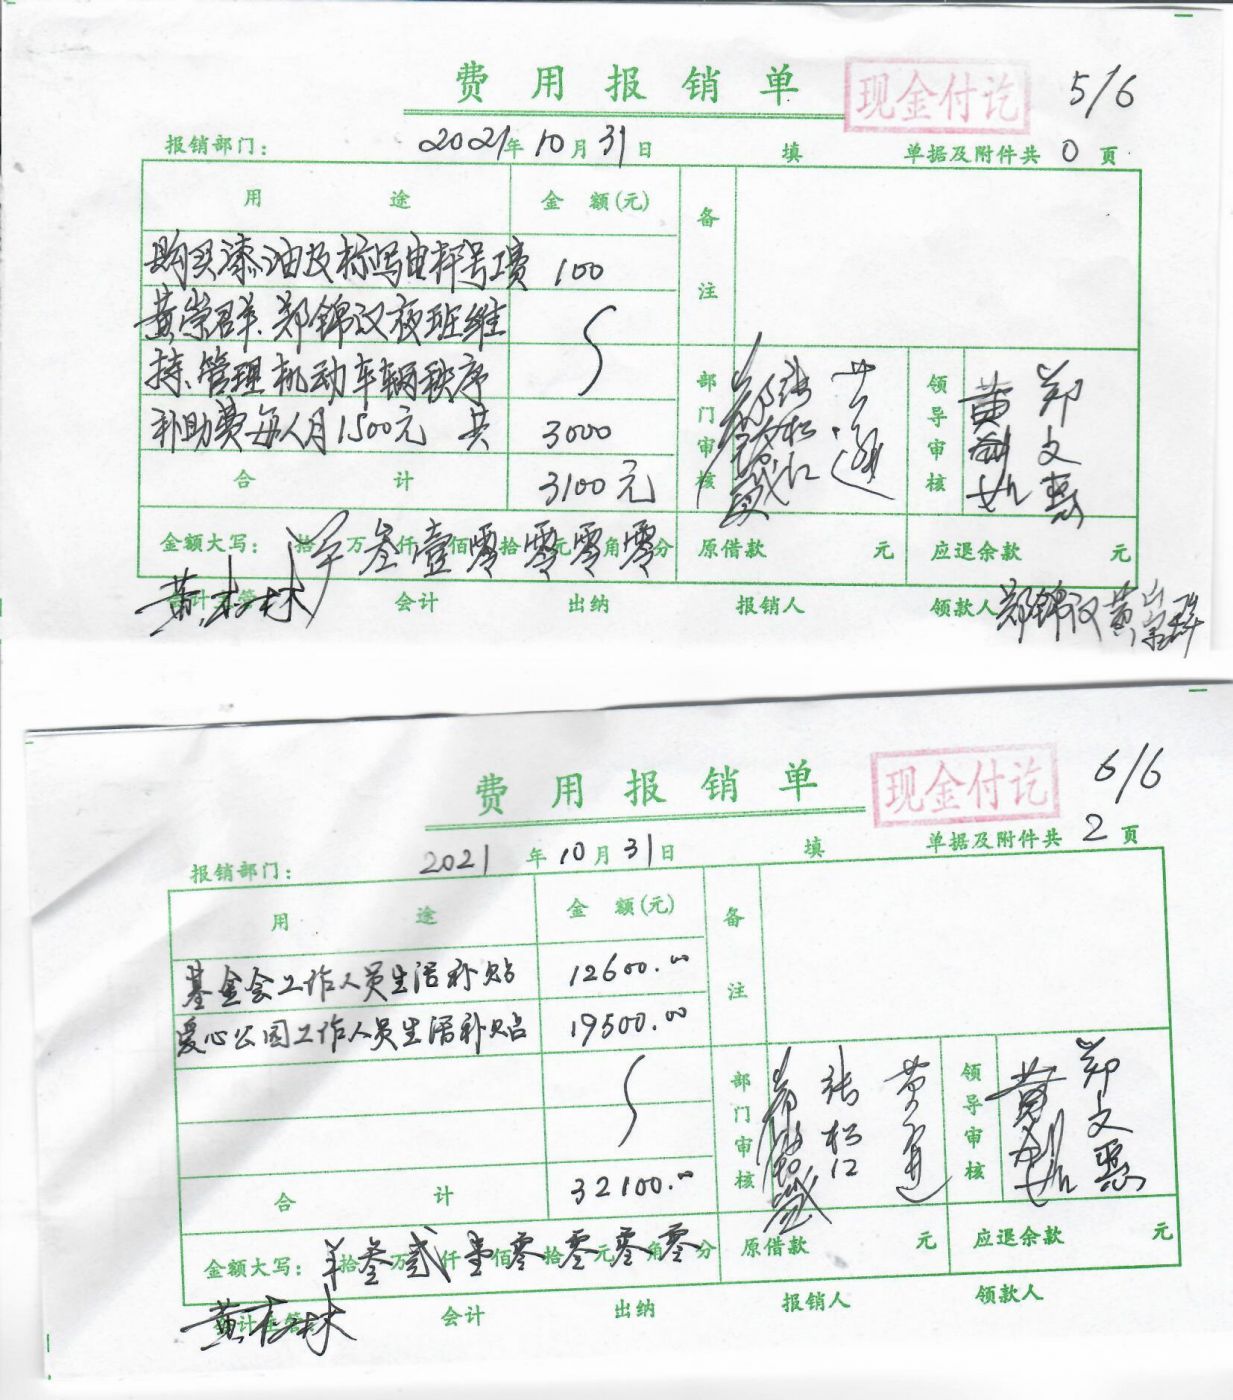 费用报销单
现金付讫
5/6
报销部门：
2021年10月31日
填
单据及附件共 0 页
用途
金额(元)
备注
购买漆油及标写电杆号工资 100
黄崇群、郑锦汉夜班维
持、管理机动车辆秩序
补助费每人月1500元 共 3000
合计
3100元
部门审核
张松江
领导审核
郑文惠
金额大写： 拾 万 叁仟 壹佰 零拾 零元 零角 零分
原借款 元
应退余款 元
黄木林
会计
出纳
报销人
领款人
郑锦汉 黄崇群
费用报销单
现金付讫
6/6
报销部门：
2021年10月31日
填
单据及附件共 2 页
用途
金额(元)
备注
基金会工作人员生活补贴 12600.00
爱心公园工作人员生活补贴 19500.00
合计
32100.00
部门审核
张松江
领导审核
郑文惠
金额大写： 拾 叁万 贰仟 壹佰 零拾 零元 零角 零分
原借款 元
应退余款 元
黄木林
会计
出纳
报销人
领款人